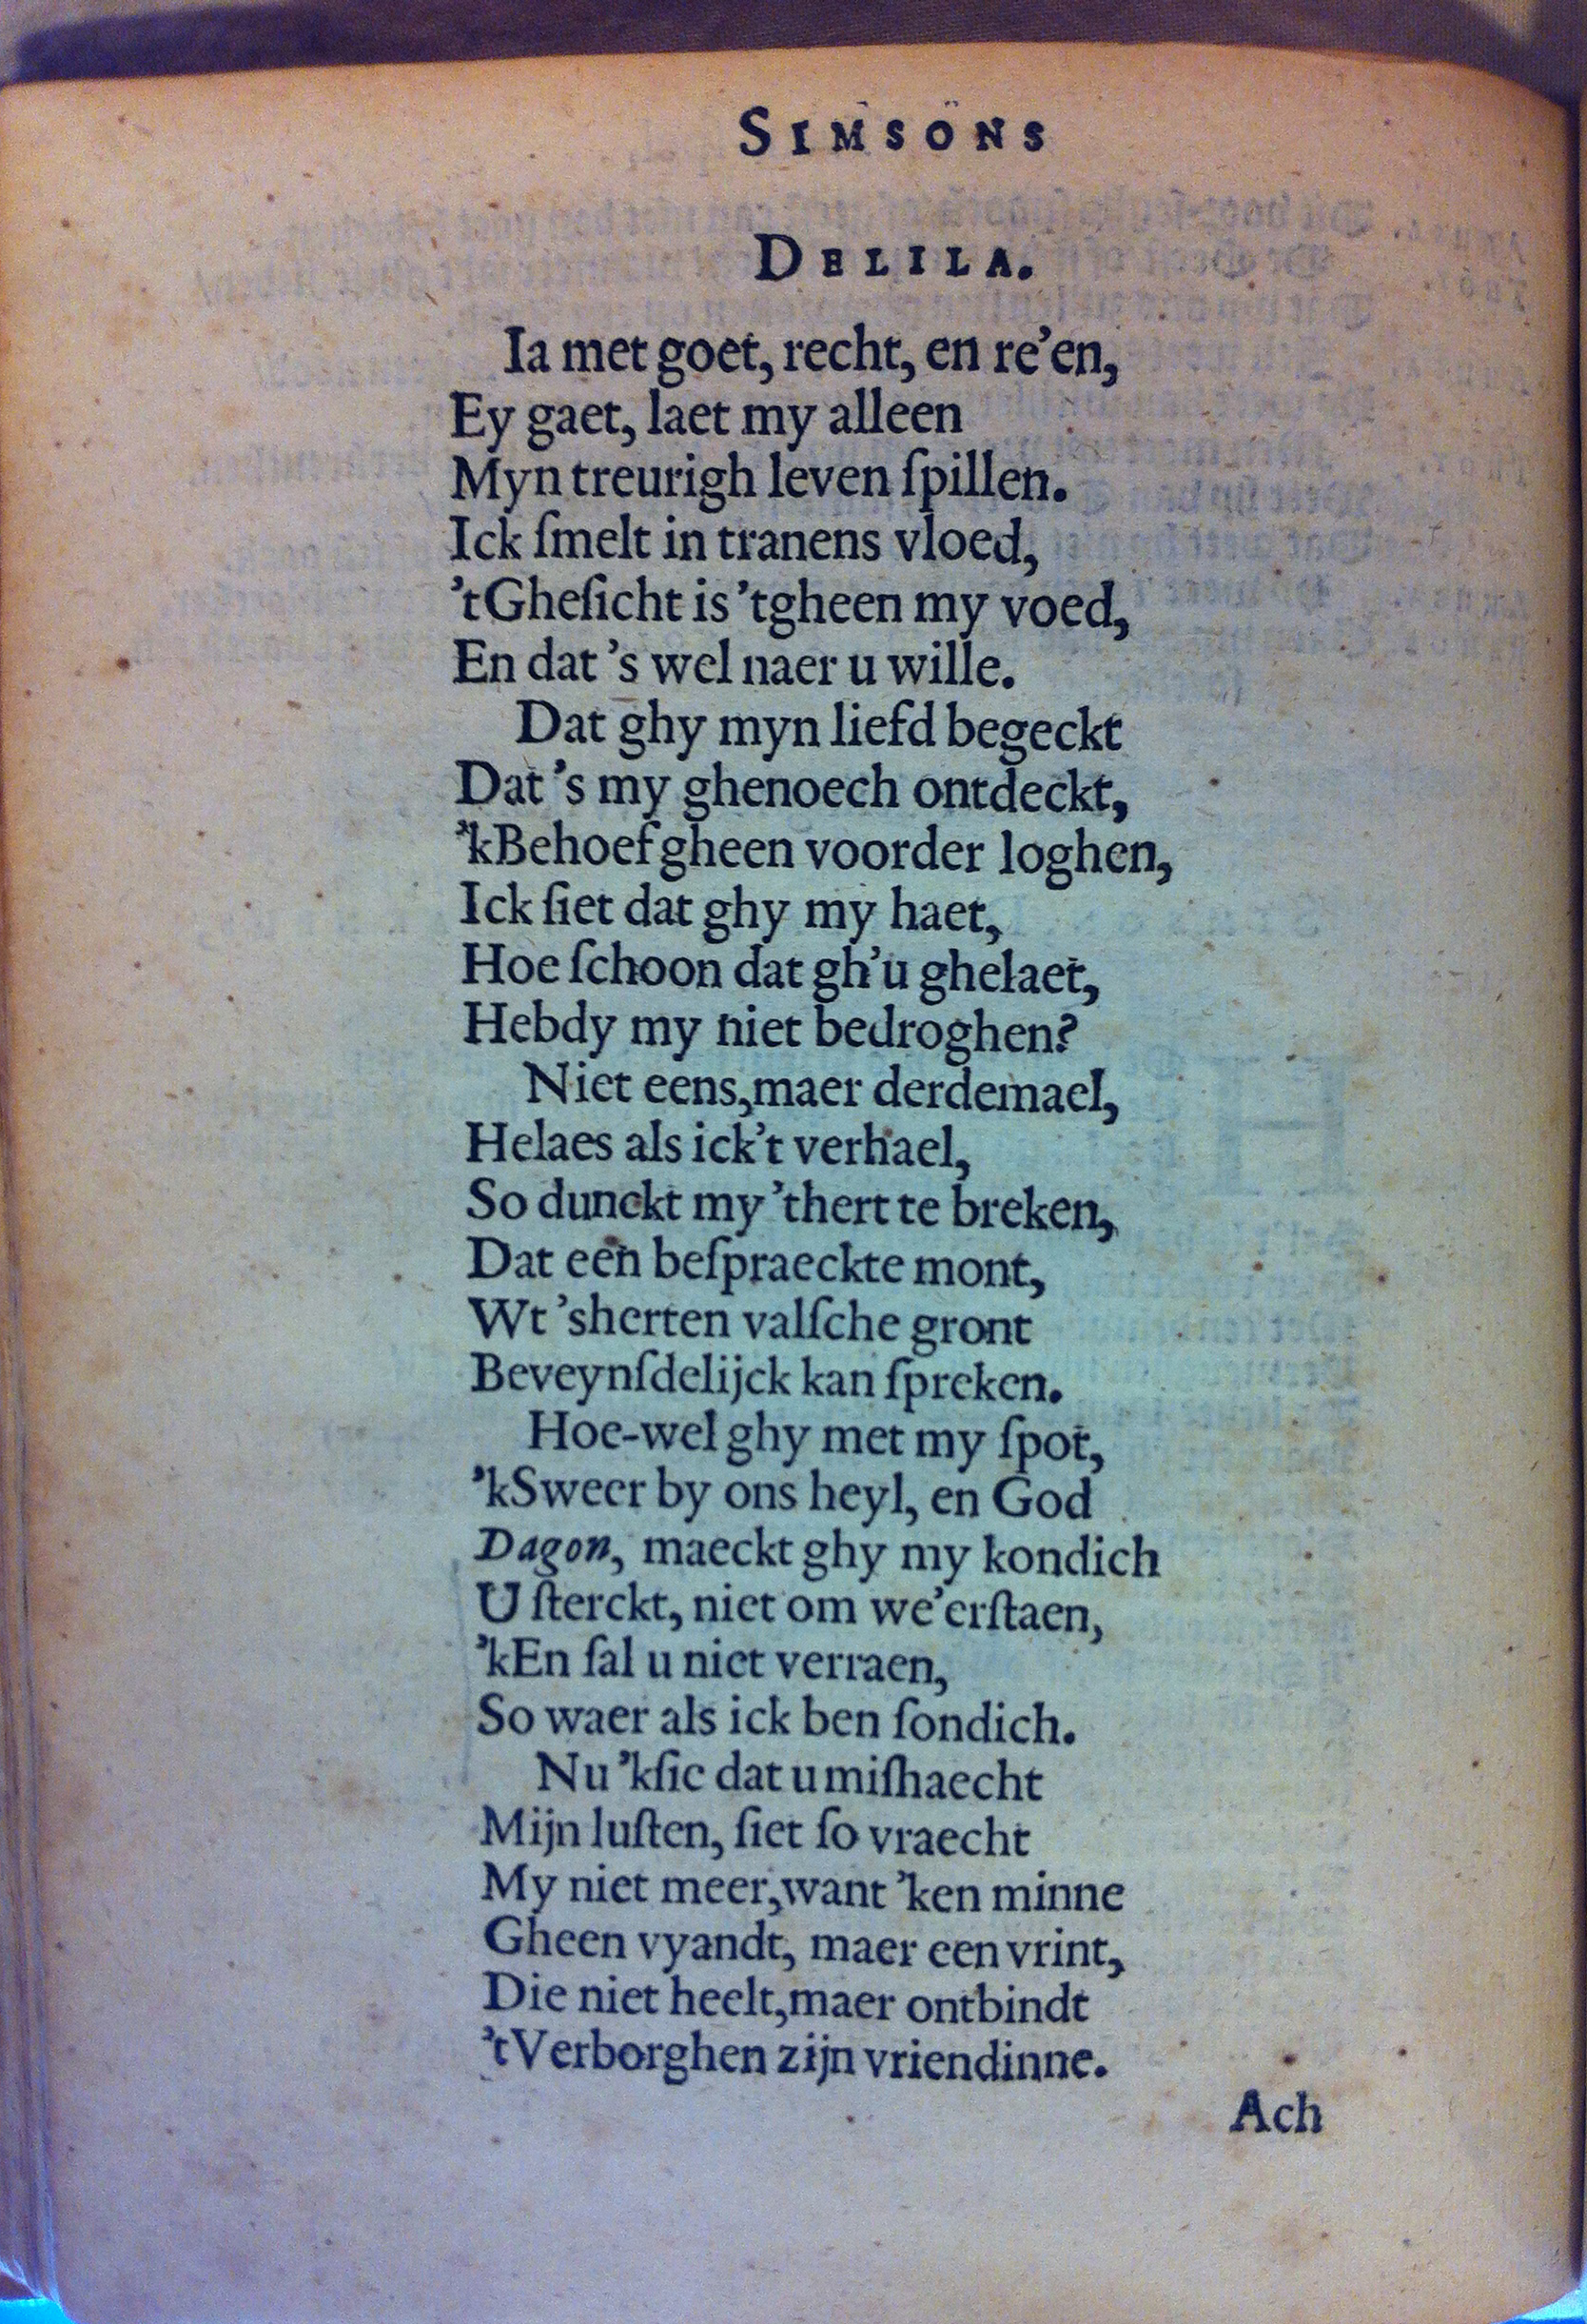 SIMSONS
DELILA.
Ia met goet, recht, en re'en,
Ey gaet, laet my alleen
Myn treurigh leven ſpillen.
Ick ſmelt in tranens vloed,
'tGheſicht is 'tgheen my voed,
En dat 's wel naer u wille.
Dat ghy myn liefd begeckt
Dat 's my ghenoech ontdeckt,
'kBehoef gheen voorder loghen,
Ick ſiet dat ghy my haet,
Hoe ſchoon dat gh'u ghelaet,
Hebdy my niet bedroghen?
Niet eens, maer derdemael,
Helaes als ick't verhael,
So dunckt my 'thert te breken,
Dat een beſpraeckte mont,
Wt 'sherten valſche gront
Beveynſdelijck kan ſpreken.
Hoe-wel ghy met my ſpot,
'kSweer by ons heyl, en God
Dagon, maeckt ghy my kondich
U ſterckt, niet om we'erſtaen,
'kEn ſal u niet verraen,
So waer als ick ben ſondich.
Nu 'kſie dat u miſhaecht
Mijn luſten, ſiet ſo vraecht
My niet meer, want 'ken minne
Gheen vyandt, maer een vrint,
Die niet heelt, maer ontbindt
'tVerborghen zijn vriendinne.
Ach